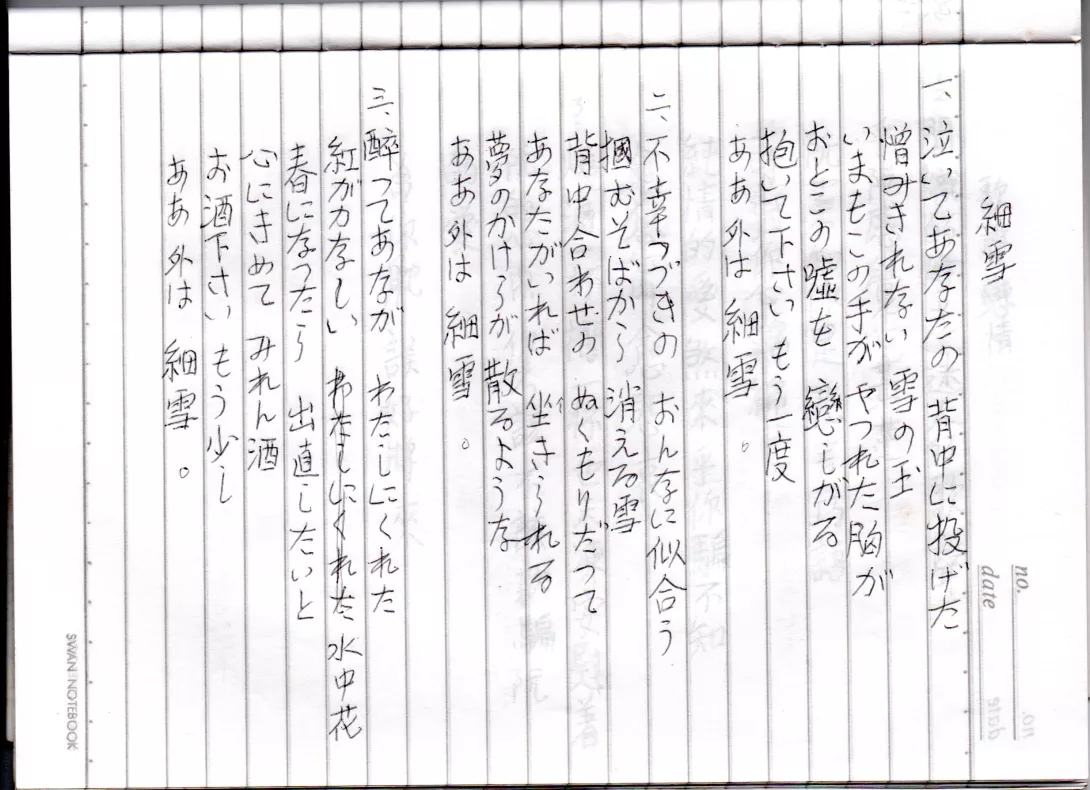 細雪
一、泣いてあなたの 背中に投げた
憎みきれない 雪の玉
いまもこの手が やつれた胸が
おとこの嘘を 戀しがる
抱いて下さい もう一度
ああ 外は 細雪。
二、不幸つづきの おんなに似合う
掴むそばから 消える雪
背中合わせの ぬくもりだって
あなたがいれば 坐きられる
夢のかけらが 散るような
ああ 外は 細雪。
三、醉ってあなが わたしにくれた
紅がカなしい わたしにくれた 水中花
春になったら 出直したいと
心にきめて みれん酒
お酒下さい もう少し
ああ 外は 細雪。
no.
date
SWAN NOTEBOOK